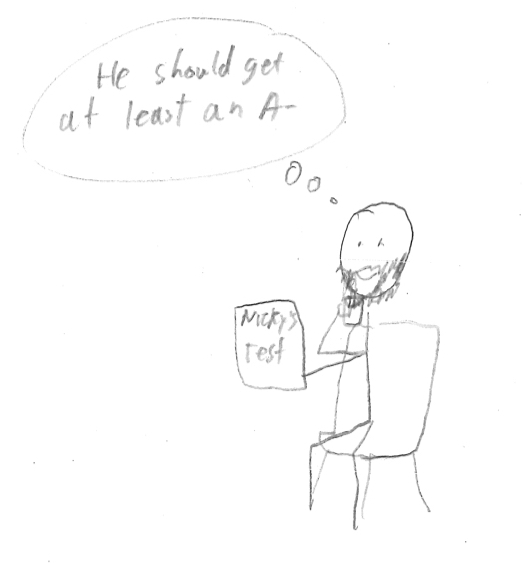 He should get
at least an A-
Nicky's
Test